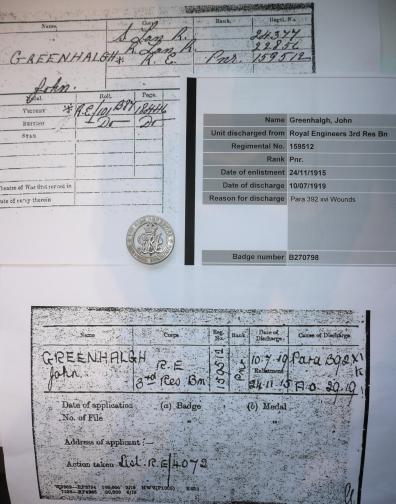 Name. Corps. Rank. Regtl. No.
S Lan R. 24377
GREENHALGH * R Lan R. 22856
R. E. Pnr. 159512
John.
Medal. Roll. Page.
VICTORY * R.E/101 B84 18446
BRITISH - Do - Do
STAR
Theatre of War first served in
Date of entry therein
Name Greenhalgh, John
Unit discharged from Royal Engineers 3rd Res Bn
Regimental No. 159512
Rank Pnr.
Date of enlistment 24/11/1915
Date of discharge 10/07/1919
Reason for discharge Para 392 xvi Wounds
Badge number B270798
Name Corps Reg. No. Rank Date of Discharge. Cause of Discharge.
GREENHALGH R.E 159512 Pnr 10.7.19 Para 392 XVI
John. 3rd Res Bn Enlistment 24.11.15
Date of application (a) Badge (b) Medal
No. of File
Address of applicant :—
Action taken List. R.E/4072